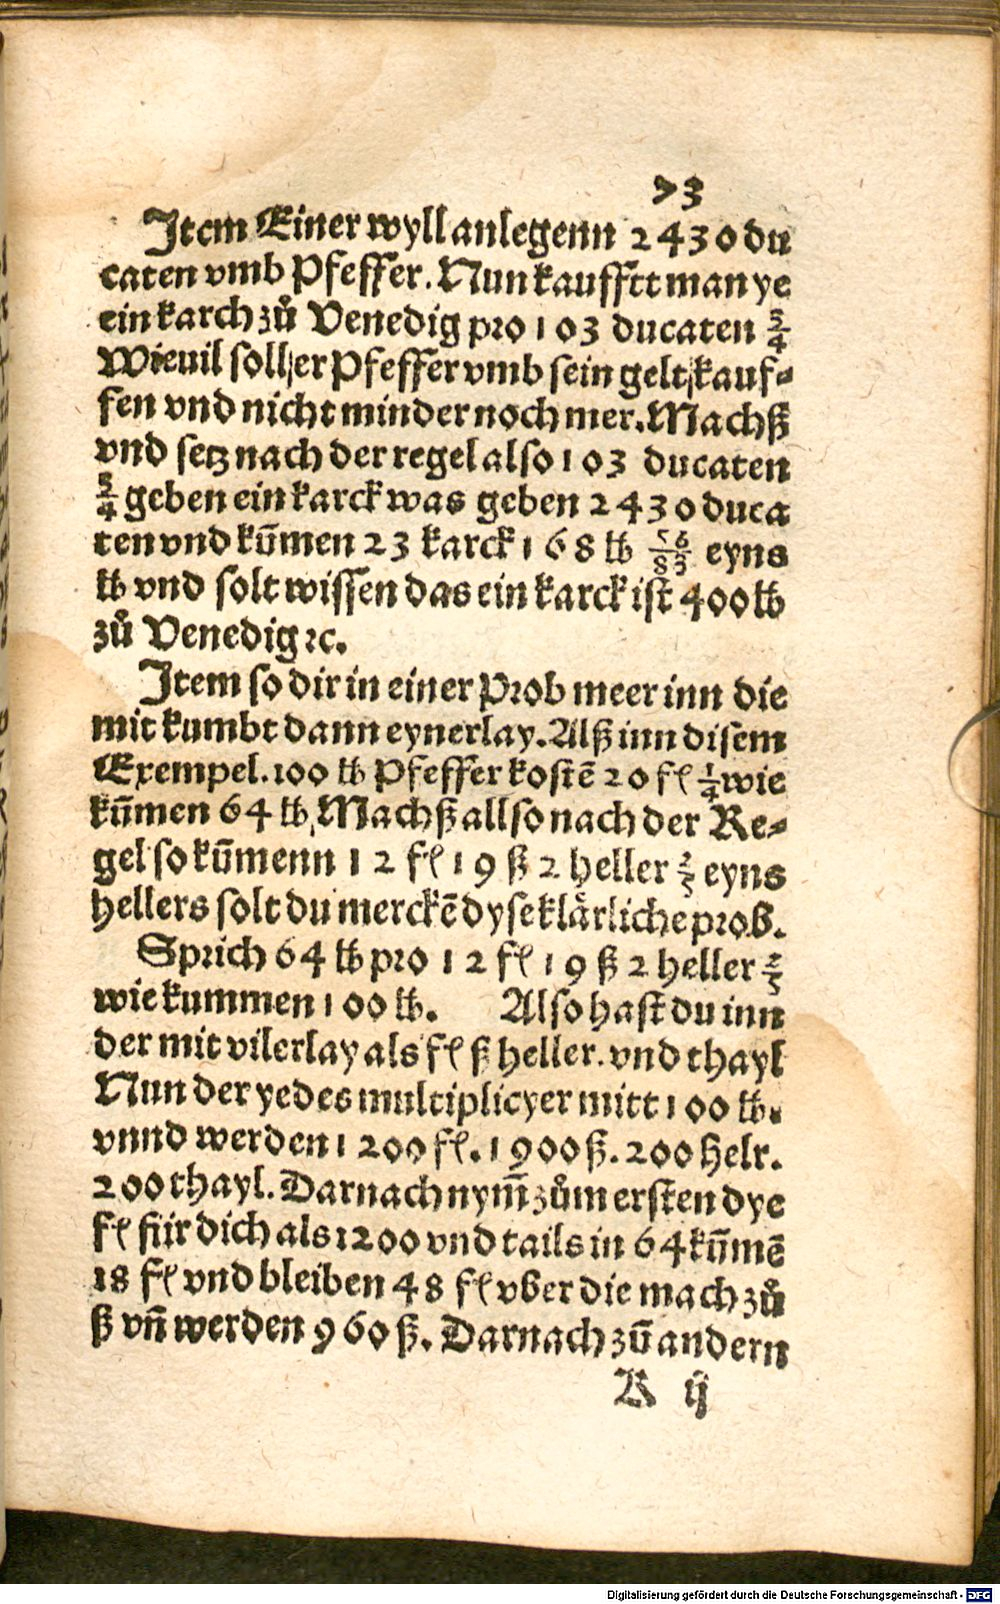 73
Item Einer wyll anlegenn 2430 du
caten vmb Pfeffer. Nun kaufftt man ye
ein karch zů Venedig pro 103 ducaten 3/4
Wieuil soll er Pfeffer vmb sein gelt kauf⸗
fen vnd nicht minder noch mer. Machß
vnd setz nach der regel also 103 ducaten
3/4 geben ein karck was geben 2430 duca
ten vnd kūmen 23 karck 168 ℔ 56/83 eyns
℔ vnd solt wissen das ein karck ist 400 ℔
zů Venedig ⁊c.
Item so dir in einer Prob meer inn die
mit kumbt dann eynerlay. Alß inn disem
Exempel. 100 ℔ Pfeffer kostē 20 fl 1/4 wie
kūmen 64 ℔, Machß allso nach der Re⸗
gel so kūmenn 12 fl 19 ß 2 heller 2/5 eyns
hellers solt du merckē dyse klärliche prob.
Sprich 64 ℔ pro 12 fl 19 ß 2 heller 2/5
wie kummen 100 ℔. Also hast du inn
der mit vilerlay als fl ß heller. vnd thayl
Nun der yedes multiplicyer mitt 100 ℔.
vnnd werden 1200 fl. 1900 ß. 200 Helr.
200 thayl. Darnach nym̄ zům ersten dye
fl für dich als 1200 vnd tails in 64 kūmē
18 fl vnd bleiben 48 fl vber die mach zů
ß vn̄ werden 960 ß. Darnach zū andern
K ij
Digitalisierung gefördert durch die Deutsche Forschungsgemeinschaft - DFG